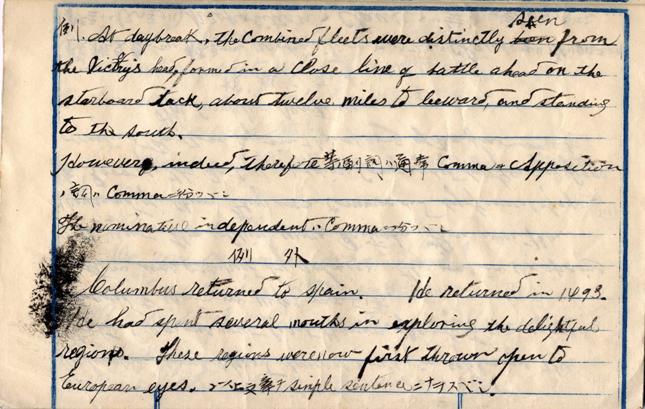 例. At daybreak, the combined fleets were distinctly seen from
the Victry's head, formed in a close line of battle ahead on the
starboard tack, about twelve miles to leeward, and standing
to the south.
However, indeed, 等副詞ハ通常 Comma Apposition
詞ハ Comma
The nominative independent ハ Comma
例 外
Columbus returned to spain. He returned in 1493.
He had spent several months in exploring the delightful
regions. These regions were now first thrown open to
European eyes. simple sentence ニナオスベシ